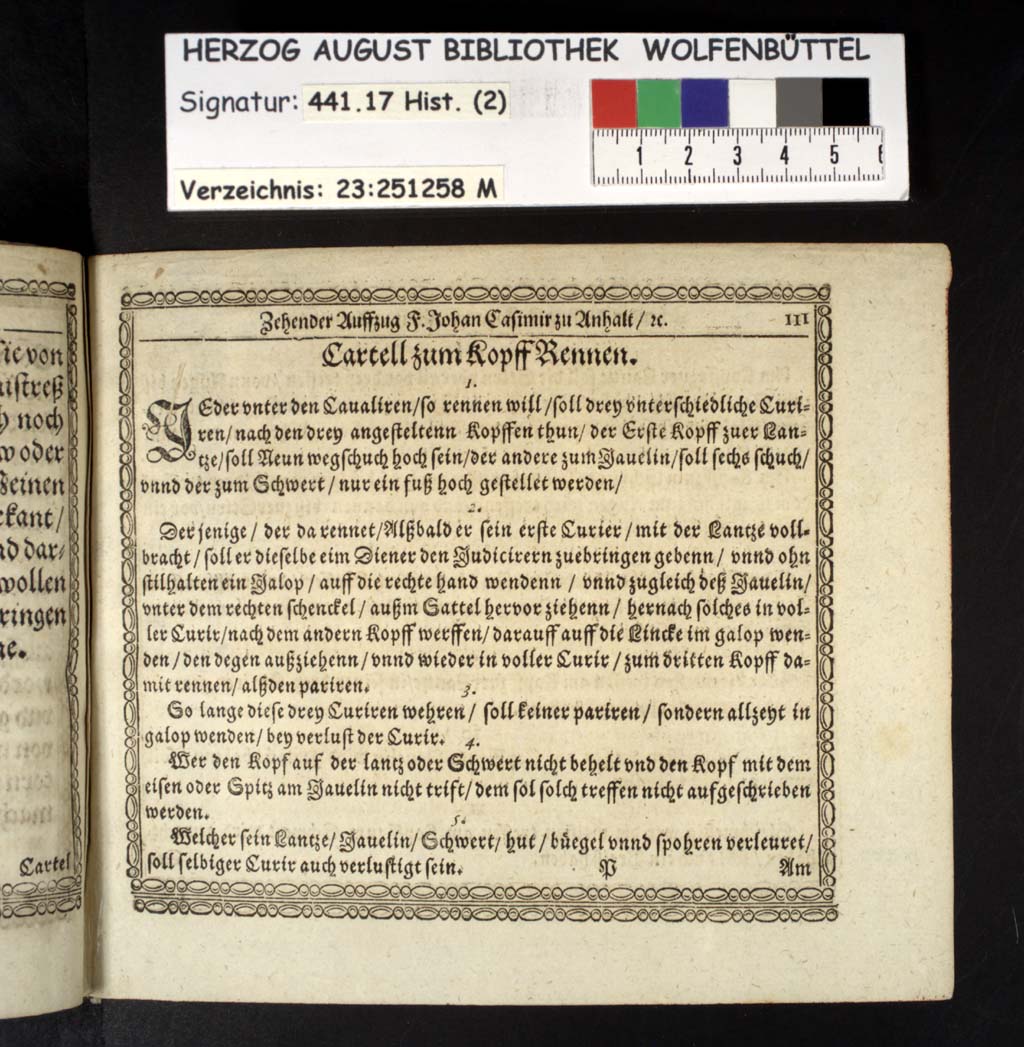 HERZOG AUGUST BIBLIOTHEK WOLFENBÜTTEL
Signatur: 441.17 Hist. (2)
1 2 3 4 5 6
Verzeichnis: 23:251258 M
sie von
istreß
h noch
w oder
einen
kant/
nd dar-
wollen
ringen
ne.
Cartel
Zehender Auffzug F. Johan Casimir zu Anhalt/ ꝛc. 111
Cartell zum Kopff Rennen.
1.
JEder vnter den Caualiren/so rennen will/soll drey vnterschiedliche Curi-
ren/nach den drey angesteltenn Kopffen thun/ der Erste Kopff zuer Lan-
tze/soll Neun wegschuch hoch sein/der andere zum Jauelin/soll sechs schuch/
vnnd der zum Schwert/ nur ein fuß hoch gestellet werden/
2.
Der jenige/ der da rennet/Alßbald er sein erste Curier/ mit der Lantze voll-
bracht/ soll er dieselbe eim Diener den Judicirern zuebringen gebenn/ vnnd ohn
stilhalten ein Jalop/ auff die rechte hand wendenn/ vnnd zugleich deß Jauelin/
vnter dem rechten schenckel/ außm Sattel hervor ziehenn/ hernach solches in vol-
ler Curir/nach dem andern Kopff werffen/darauff auff die Lincke im galop wen-
den/den degen außziehenn/vnnd wieder in voller Curir/zum dritten Kopff da-
mit rennen/ alßden pariren.
3.
So lange diese drey Curiren wehren/ soll keiner pariren/ sondern allzeyt in
galop wenden/ bey verlust der Curir.
4.
Wer den Kopf auf der lantz oder Schwert nicht behelt vnd den Kopf mit dem
eisen oder Spitz am Jauelin nicht trift/dem sol solch treffen nicht aufgeschrieben
werden.
5.
Welcher sein Lantze/ Jauelin/ Schwert/ hut/ büegel vnnd spohren verleuret/
soll selbiger Curir auch verlustigt sein.
P Am